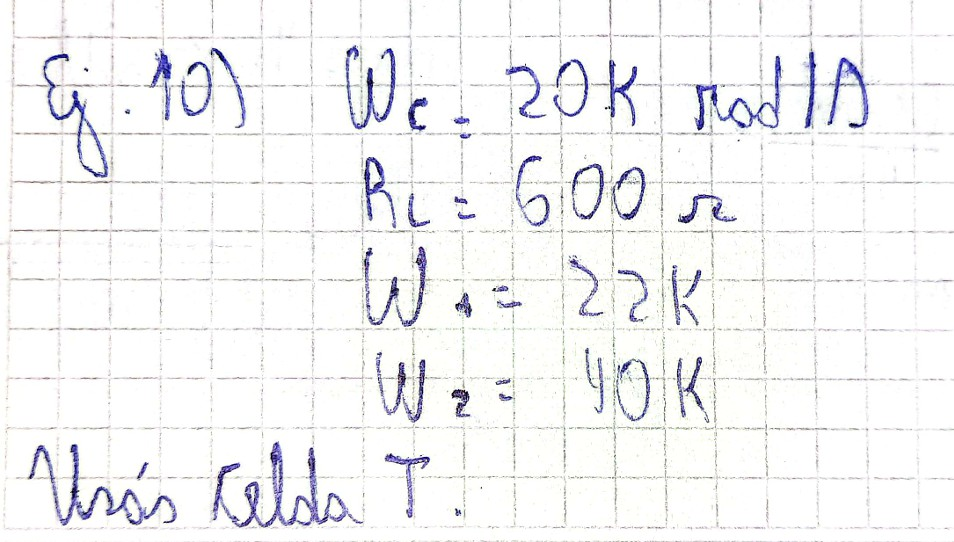 Ej. 10) Wc = 20K rad/s
RL = 600 Ω
W1 = 22K
W2 = 40K
Usás celda T.